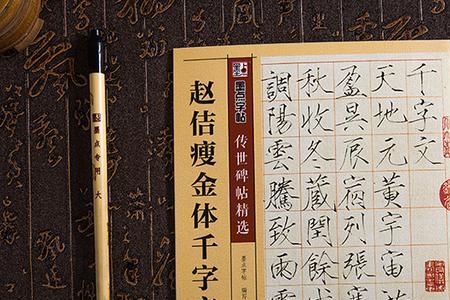 墨点专用 大
墨点字帖
传世碑帖精选
赵佶瘦金体千字
墨点字帖 编写
千字文
天地元黄宇宙
盈昃辰宿列張
秋收冬藏閏餘
調陽雲騰致雨